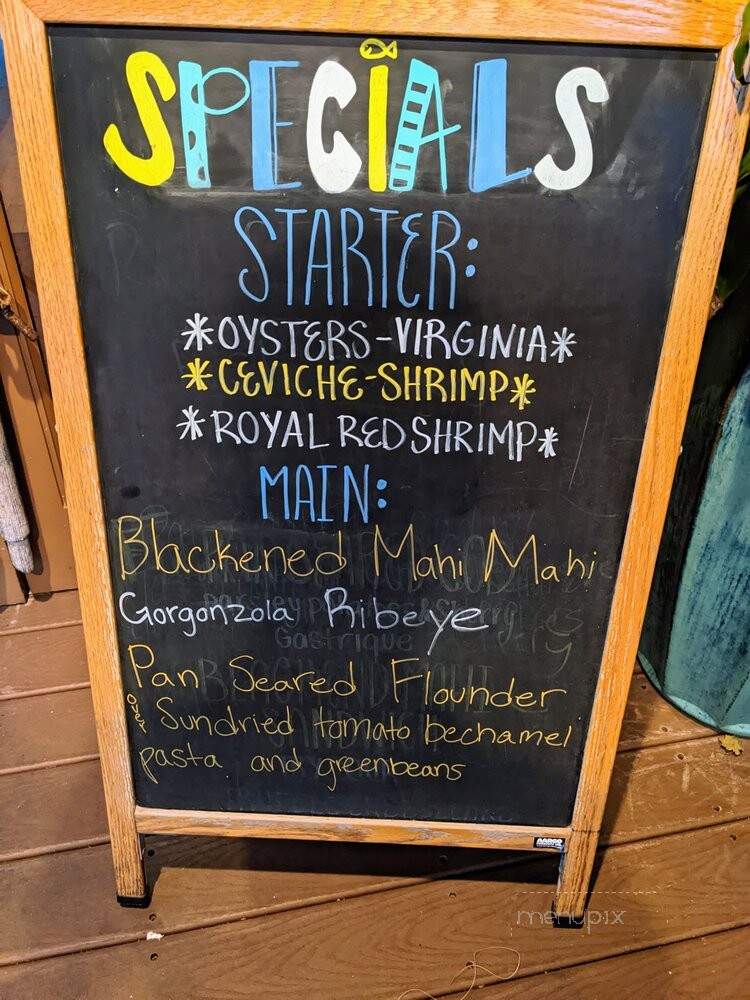 SPECIALS
STARTER:
*OYSTERS-VIRGINIA*
*CEVICHE-SHRIMP*
*ROYAL RED SHRIMP*
MAIN:
Blackened Mahi Mahi
Gorgonzola Ribeye
Gastrique
Pan Seared Flounder
over Sundried tomato bechamel
pasta and greenbeans
AARCO
menupix